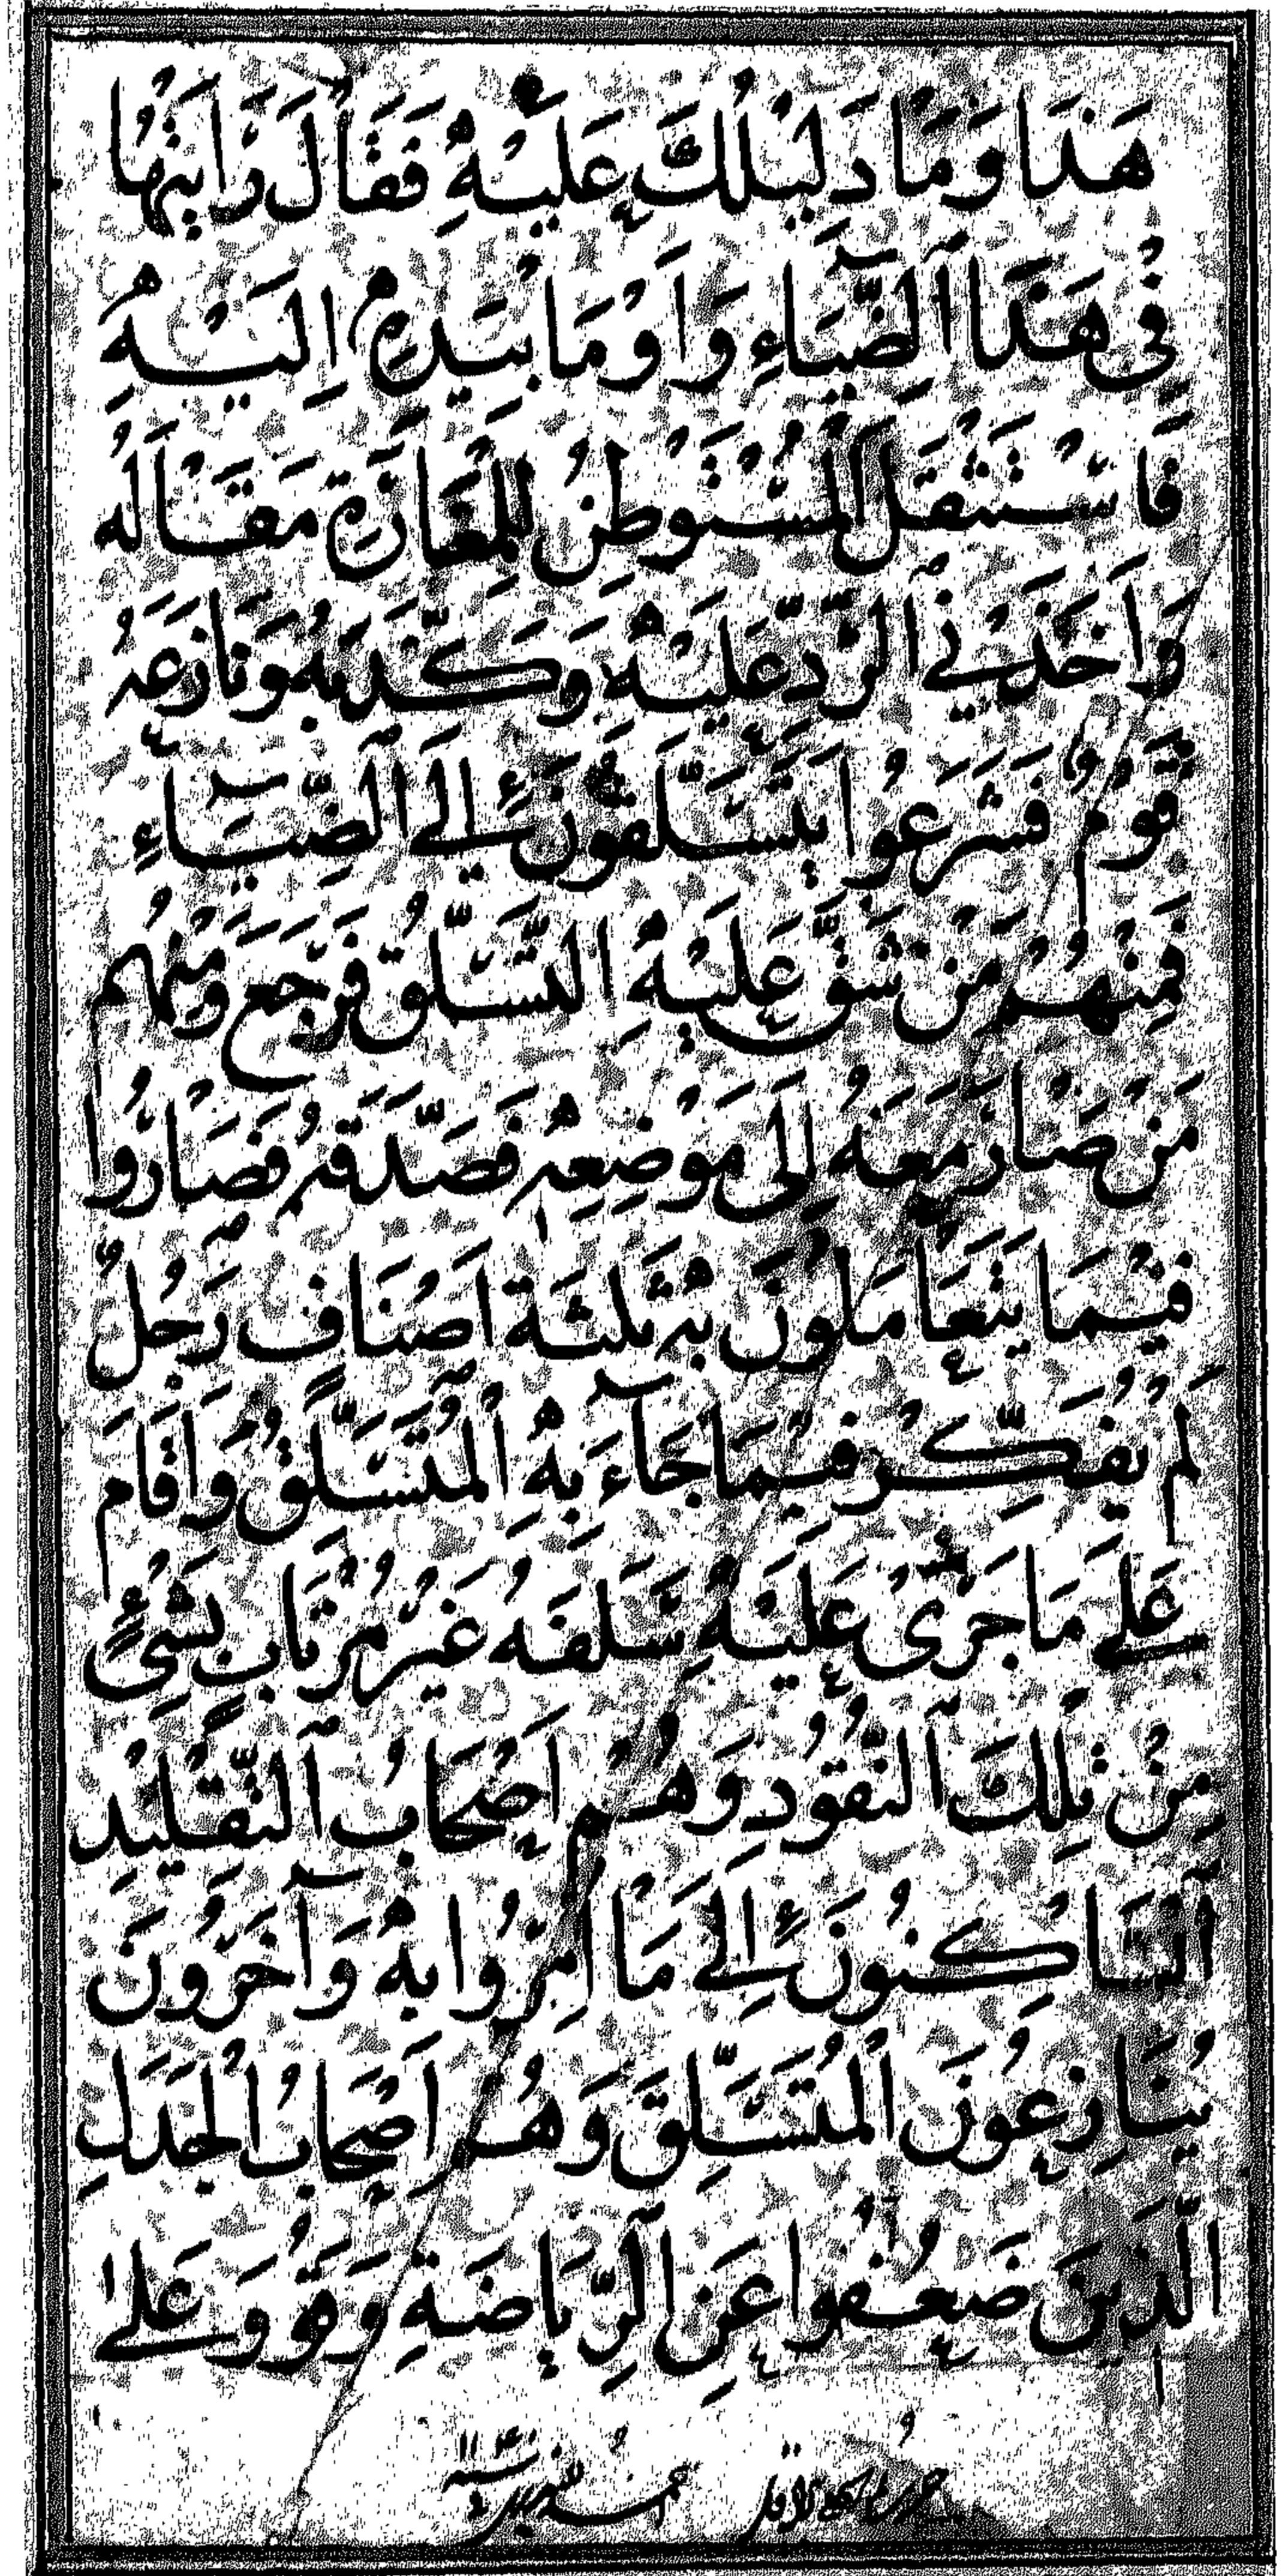 هَذَا وَمَا دَلِيْلُكَ عَلَيْهِ فَقَالَ رَأيْتُهَا
فِيْ هَذَا الضِّيَاءِ وَاَوْمَا بِيَدِهِ اِلَيْهِ
فَاسْتَثْقَلَ الْمُسْتَوْطِنُ لِلْمَغَارَةِ مَقَالَهُ
وَاَخَذَ فِي الرَّدِّ عَلَيْهِ وَكَذَّبَهُ وَنَازَعَهُ
قَوْمٌ فَشَرَعُوا يَتَسَلَّقُوْنَ اِلَى الضِّيَاءِ
فَمِنْهُمْ مَنْ شَقَّ عَلَيْهِ التَّسَلُّقُ فَرَجَعَ وَمِنْهُمْ
مَنْ صَارَ مَعَهُ اِلَى مَوْضِعِهِ فَصَدَّقَهُ فَصَارُوْا
فِيْمَا يَتَعَامَلُوْنَ بِهِ ثَلٰثَةَ اَصْنَافٍ رَجُلٌ
لَمْ يُفَكِّرْ فِيْمَا جَاءَ بِهِ الْمُتَسَلِّقُ وَاَقَامَ
عَلَى مَا جَرَى عَلَيْهِ سَلَفُهُ غَيْرُ مُرْتَابٍ بِشَيْءٍ
مِنْ تِلْكَ النُّقُوْدِ وَهُمْ اَصْحَابُ التَّقْلِيْدِ
السَّاكِنُوْنَ اِلَى مَا اُمِرُوْا بِهِ وَآخَرُوْنَ
يُنَازِعُوْنَ الْمُتَسَلِّقَ وَهُمْ اَصْحَابُ الْجَدَلِ
الَّذِيْنَ ضَعُفُوْا عَنِ الرِّيَاضَةِ وَقَوُوْا عَلَى